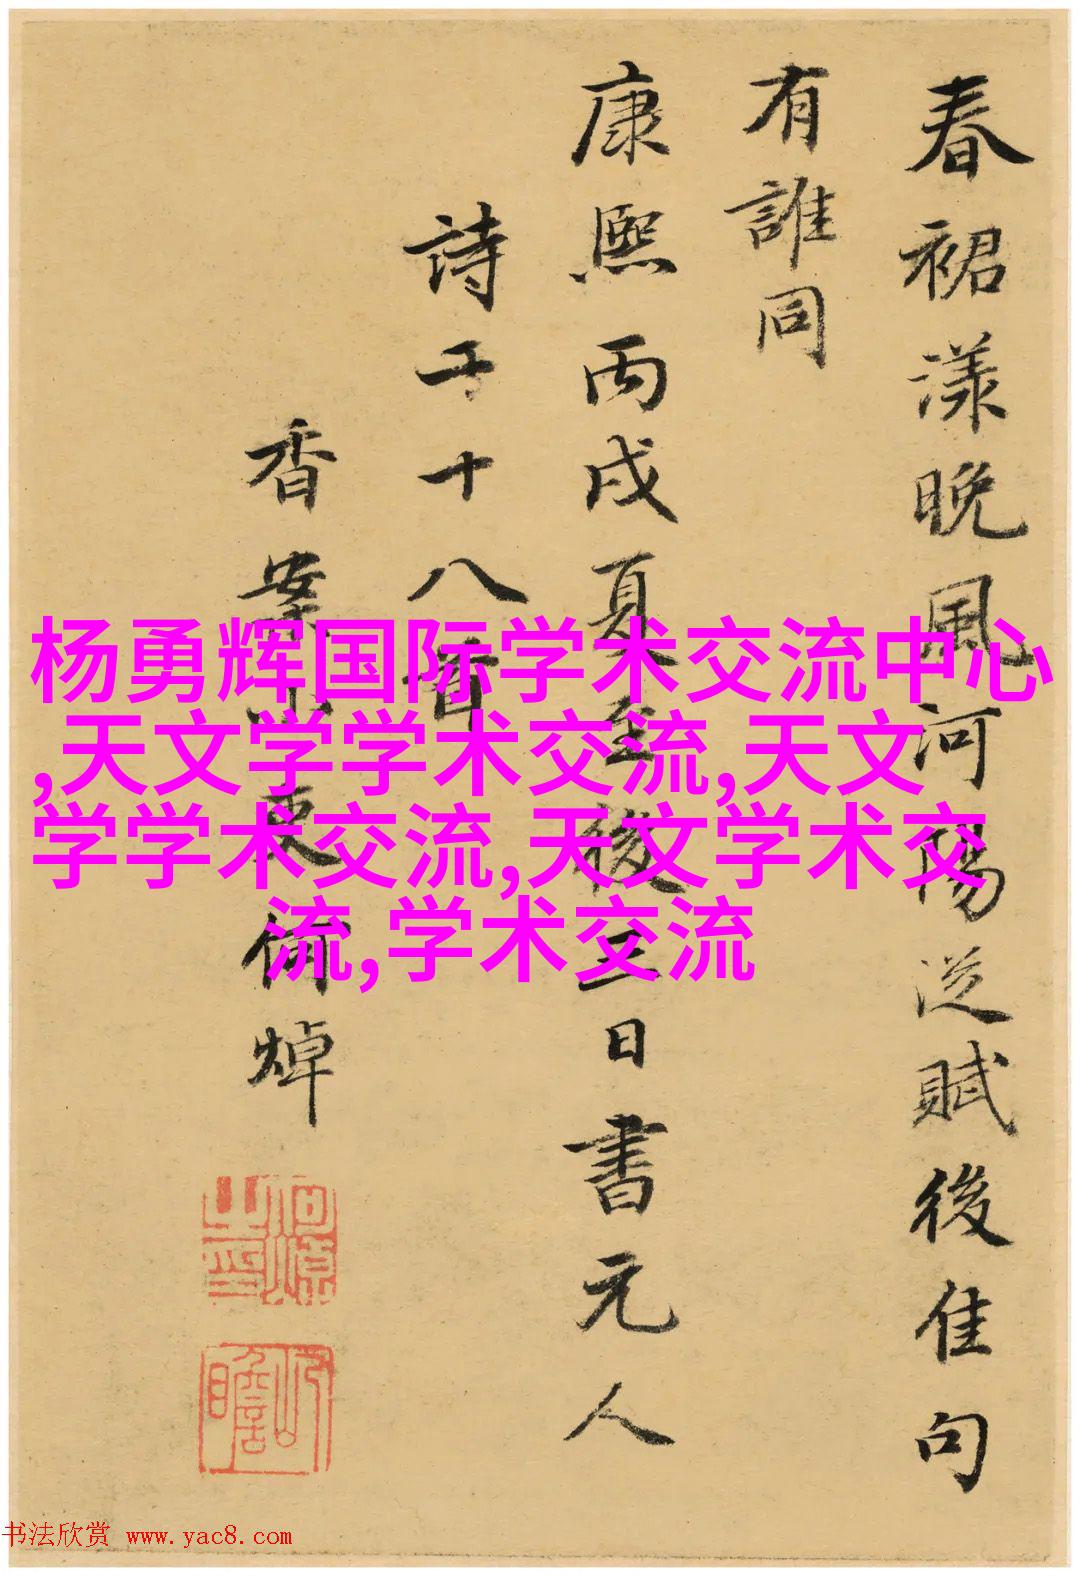 春裙漾晚風河陽從賦後佳句
有誰同
康熙丙戌夏至後三日書元人
詩十八首
香案小吏何焯
何焯之印
屺瞻
杨勇辉国际学术交流中心
,天文学学术交流,天文
学学术交流,天文学术交
流,学术交流
书法欣赏 www.yac8.com